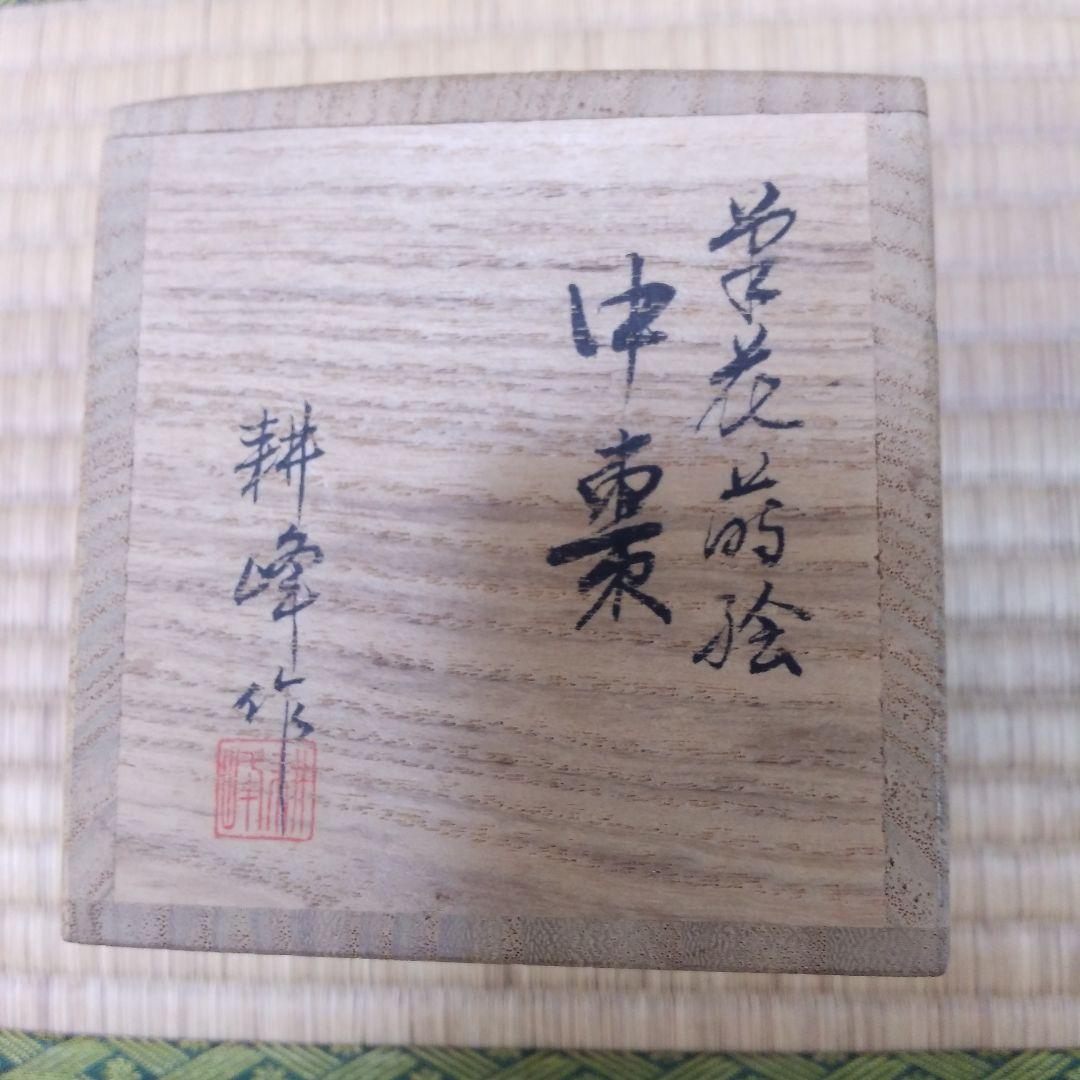 草花蒔絵
中棗
耕峰作
耕峰